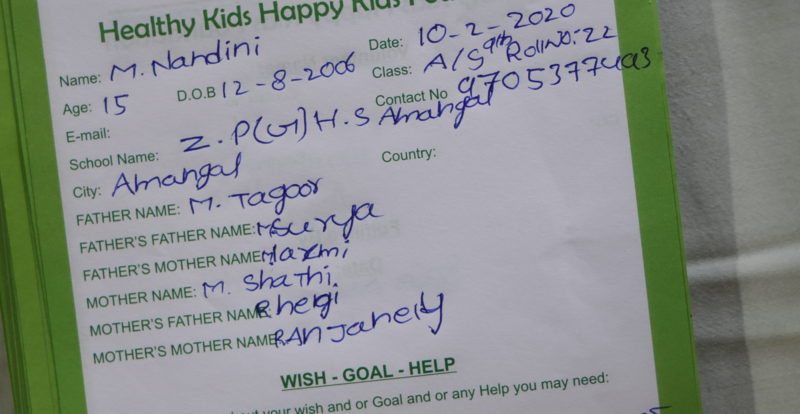 Healthy Kids Happy Kids
Name: M. Nandini Date: 10-2-2020
Age: 15 D.O.B 12-8-2006 Class: A/S 9th Roll NO:-22
E-mail: Contact No 9705377493
School Name: Z.P(G)H.S Amangal
City: Amangal Country:
FATHER NAME: M. Tagoor
FATHER'S FATHER NAME: M Surya
FATHER'S MOTHER NAME Maxmi
MOTHER NAME: M. Shathi
MOTHER'S FATHER NAME
MOTHER'S MOTHER NAME RAnJanely
WISH - GOAL - HELP
your wish and or Goal and or any Help you may need: